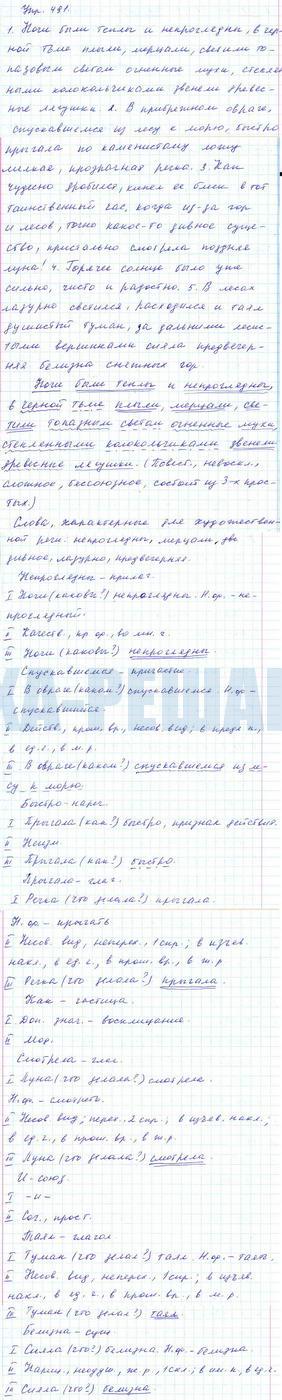 Упр. 491.
1. Ночи были теплы и непроглядны, в чер-
ной тьме плыли, мерцали, светили то-
пазовым светом огненные мухи, стеклян-
ными колокольчиками звенели древес-
ные лягушки. 2. В прибрежном овраге,
спускавшемся из лесу к морю, быстро
прыгала по каменистому ложу
мелкая, прозрачная речка. 3. Как
чудесно дробился, кипел её блеск в тот
таинственный час, когда из-за гор
и лесов, точно какое-то дивное суще-
ство, пристально смотрела поздняя
луна! 4. Горячее солнце было уже
сильно, чисто и радостно. 5. В лесах
лазурно светился, расходился и таял
душистый туман, за дальними леси-
стыми вершинами сияла предвечер-
няя белизна снежных гор.
Ночи были теплы и непроглядны,
в черной тьме плыли, мерцали, све-
тили топазным светом огненные мухи,
стеклянными колокольчиками звенели
древесные лягушки. (Повест., невоскл.,
сложное, бессоюзное, состоит из 3-х прос-
тых.)
Слова, характерные для художествен-
ной речи: непроглядны, мерцали,
дивное, лазурно, предвечерняя.
Непроглядны – прилаг.
I Ночи (каковы?) непроглядны. Н.ф. – не-
проглядный.
II Качеств., кр. ф., во мн. ч.
III Ночи (каковы?) непроглядны.
Спускавшемся – причастие.
I В овраге (каком?) спускавшемся. Н.ф. –
спускавшийся.
II Действ., прош. вр., несов. вид; в предл. п.,
в ед. ч., в м. р.
III В овраге (каком?) спускавшемся из ле-
су к морю.
Быстро – нареч.
I Прыгала (как?) быстро, признак действия.
II Неизм.
III Прыгала (как?) быстро.
Прыгала – глаг.
I Речка (что делала?) прыгала.
Н.ф. – прыгать.
II Несов. вид, неперех., 1 спр.; в изъяв.
накл., в ед. ч., в прош. вр., в ж. р.
III Речка (что делала?) прыгала.
Как – частица.
I Доп. знач. – восклицание.
II Мод.
Смотрела – глаг.
I Луна (что делала?) смотрела.
Н.ф. – смотреть.
II Несов. вид; перех., 2 спр.; в изъяв. накл.;
в ед. ч., в прош. вр., в ж. р.
III Луна (что делала?) смотрела.
И – союз.
I –и–
II Соч., прост.
Таял – глагол.
I Туман (что делал?) таял. Н.ф. – таять.
II Несов. вид, неперех., 1 спр.; в изъяв.
накл., в ед. ч., в прош. вр., в м. р.
III Туман (что делал?) таял.
Белизна – сущ.
I Сияла (что?) белизна. Н.ф. – белизна.
II Нариц., неодуш., ж. р., 1 скл.; в им. п., в ед. ч.
III Сияла (что?) белизна.